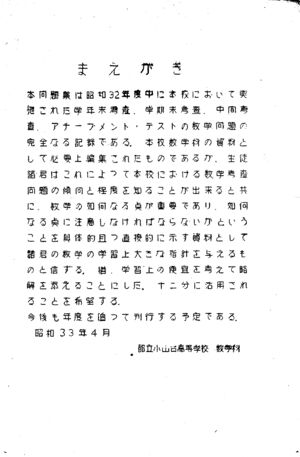 まえがき
本問題集は昭和32年度中に本校において実
施された学年末考査、学期末考査、中間考
査、アチーブメント・テストの数学問題の
完全なる記録である。本校数学科の資料と
して必要上編集されたものであるが、生徒
諸君はこれによつて本校における数学考査
問題の傾向と程度を知ることが出来ると共
に、数学の如何なる点が重要であり、如何
なる点に注意しなければならないかという
ことを具体的且つ直接的に示す資料として
諸君の数学の学習上大きな指針を与えるも
のと信ずる。猶、学習上の便宜を考えて略
解を添えることにした。十二分に活用され
ることを希望する。
今後も年度を追つて刊行する予定である。
昭和33年4月
都立小山台高等学校 数学科